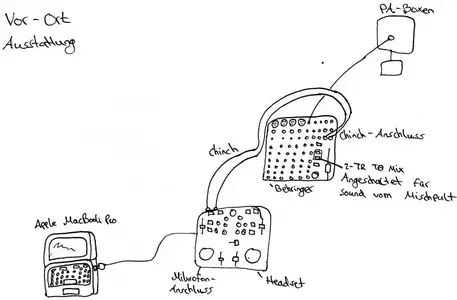 Vor-Ort
Ausstattung
PA-Boxen
chinch
chinch-Anschluss
2-TR TO MIX
Angeschaltet für
sound vom Mischpult
Behringer
Apple MacBook Pro
Mikrofon-
Anschluss
Headset